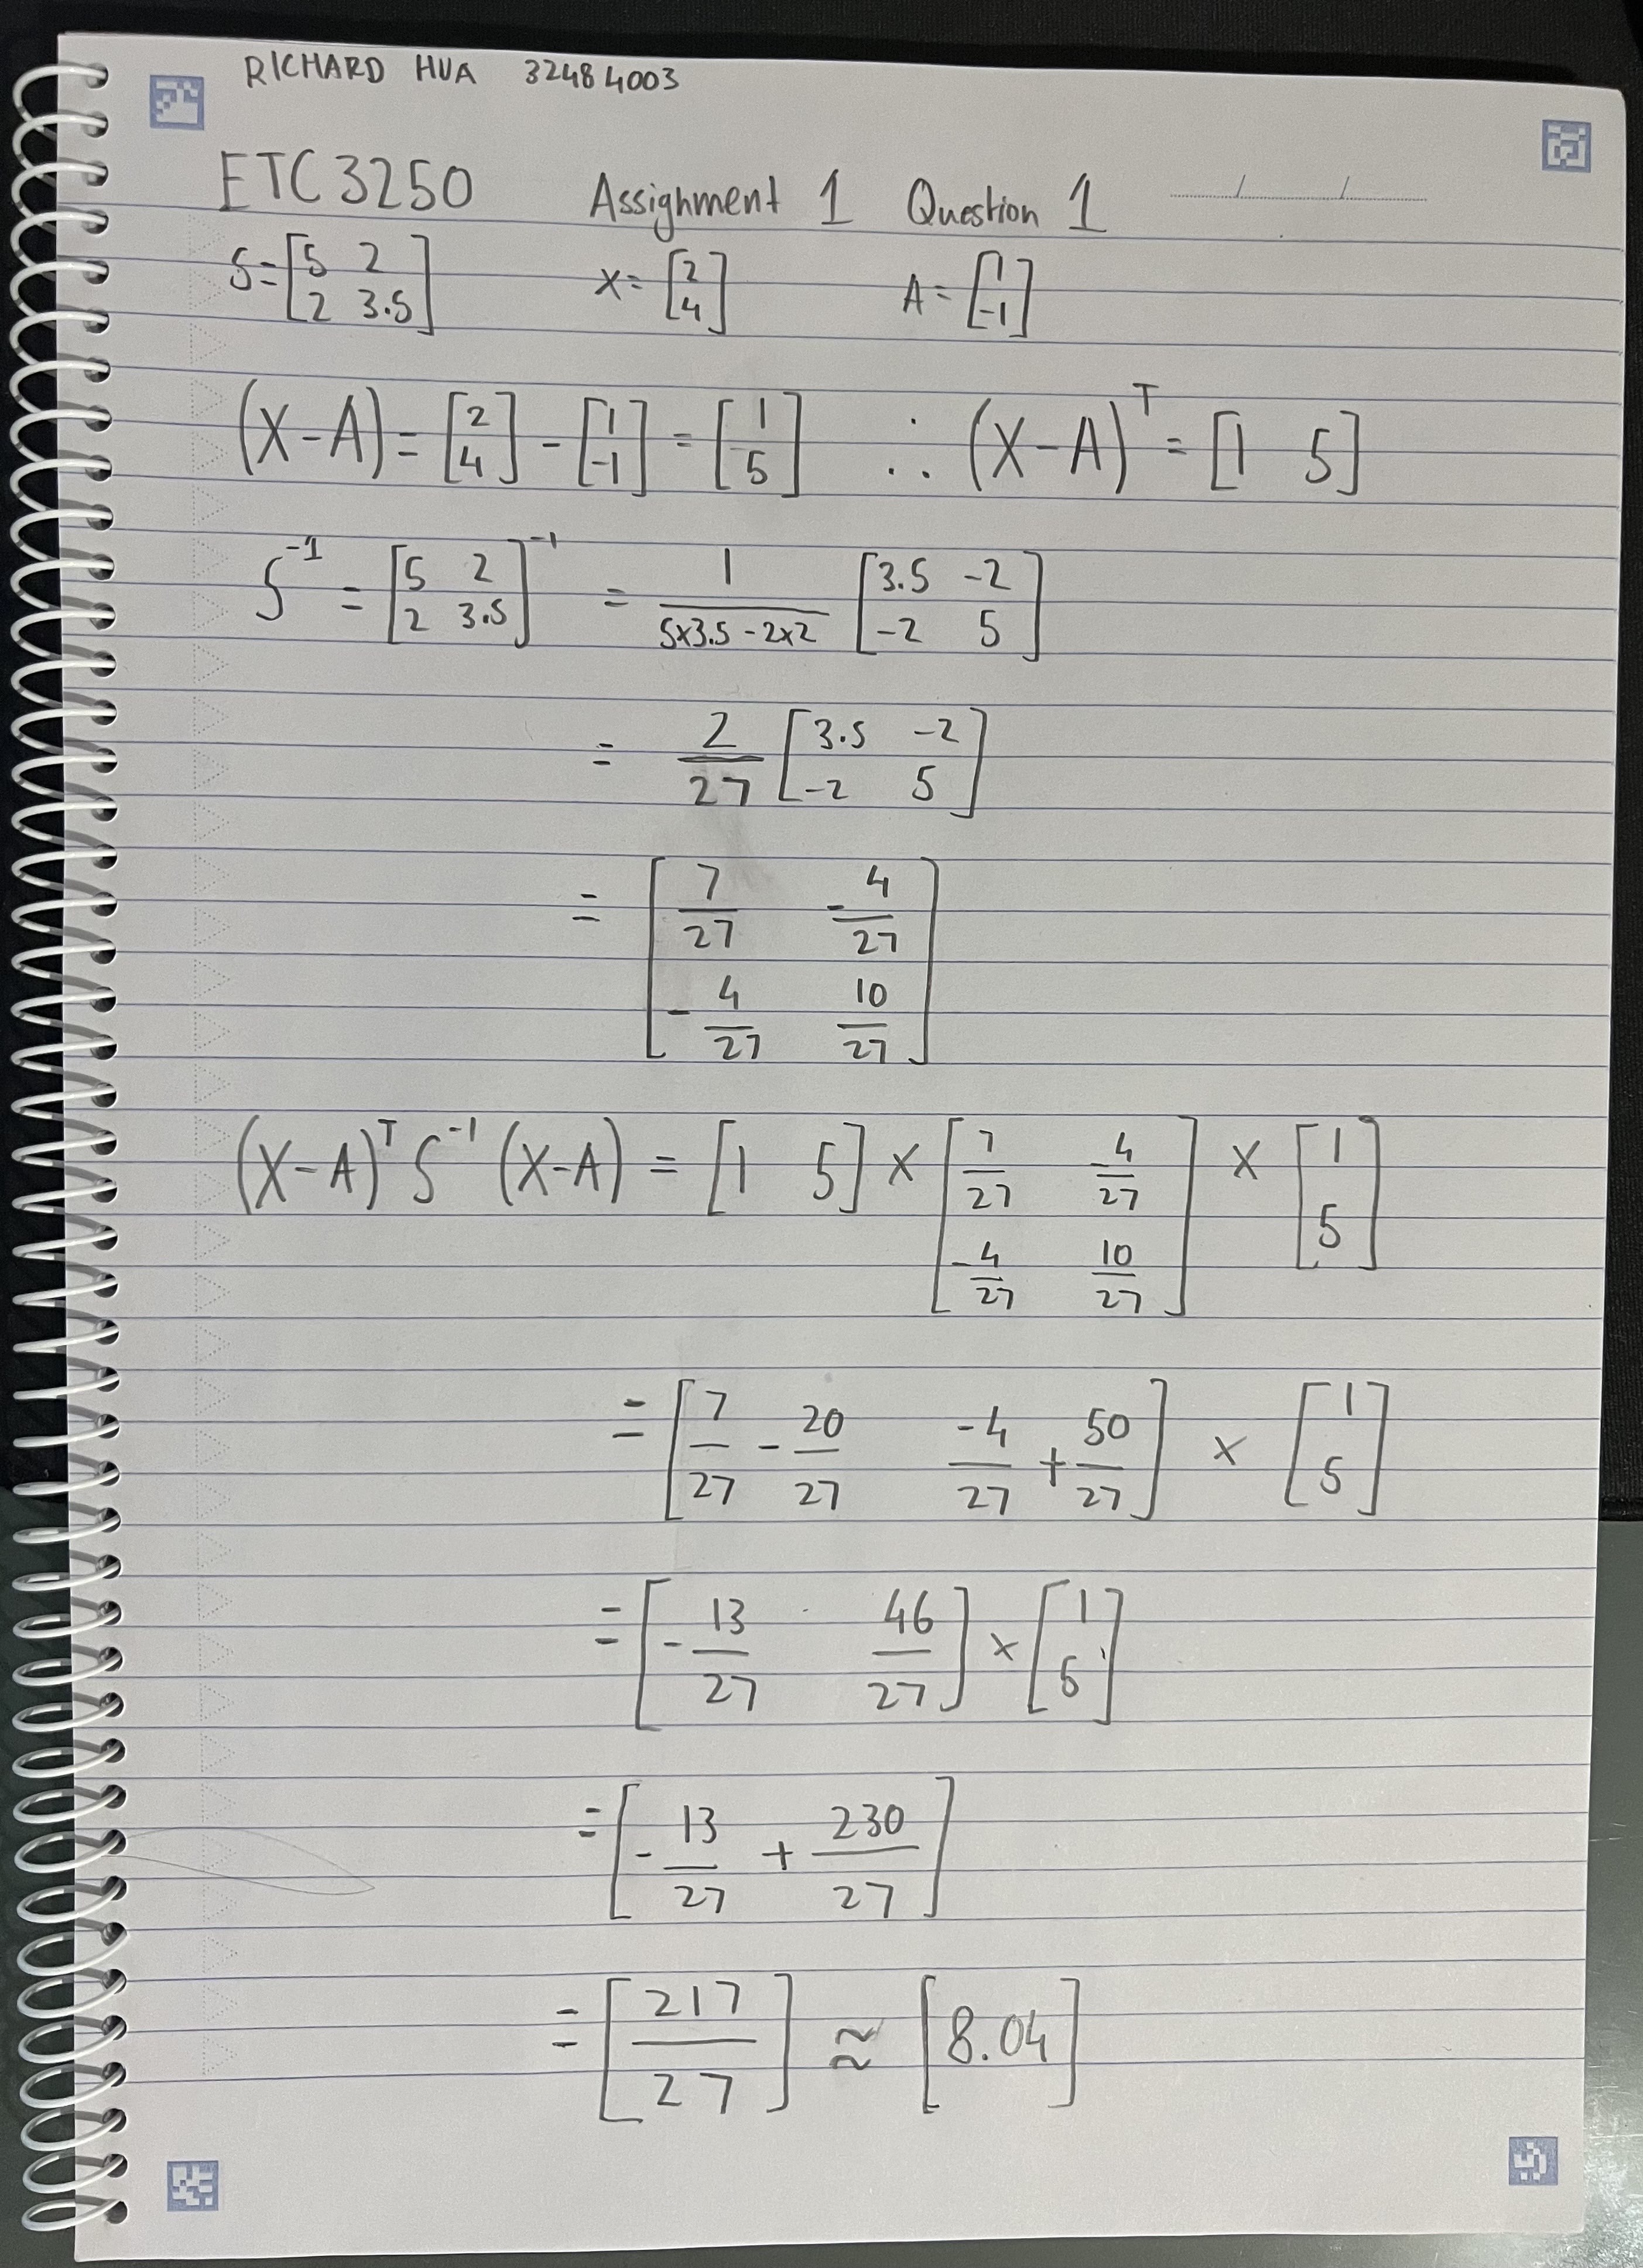 RICHARD HUA 32484003
ETC3250 Assignment 1 Question 1
S = [5 2; 2 3.5] X = [2; 4] A = [1; -1]
(X-A) = [2; 4] - [1; -1] = [1; 5] ∴ (X-A)^T = [1 5]
S^-1 = [5 2; 2 3.5]^-1 = 1/(5x3.5 - 2x2) [3.5 -2; -2 5]
= 2/27 [3.5 -2; -2 5]
= [7/27 -4/27; -4/27 10/27]
(X-A)^T S^-1 (X-A) = [1 5] × [7/27 -4/27; -4/27 10/27] × [1; 5]
= [7/27 - 20/27 -4/27 + 50/27] × [1; 5]
= [-13/27 46/27] × [1; 5]
= [-13/27 + 230/27]
= [217/27] ≈ [8.04]